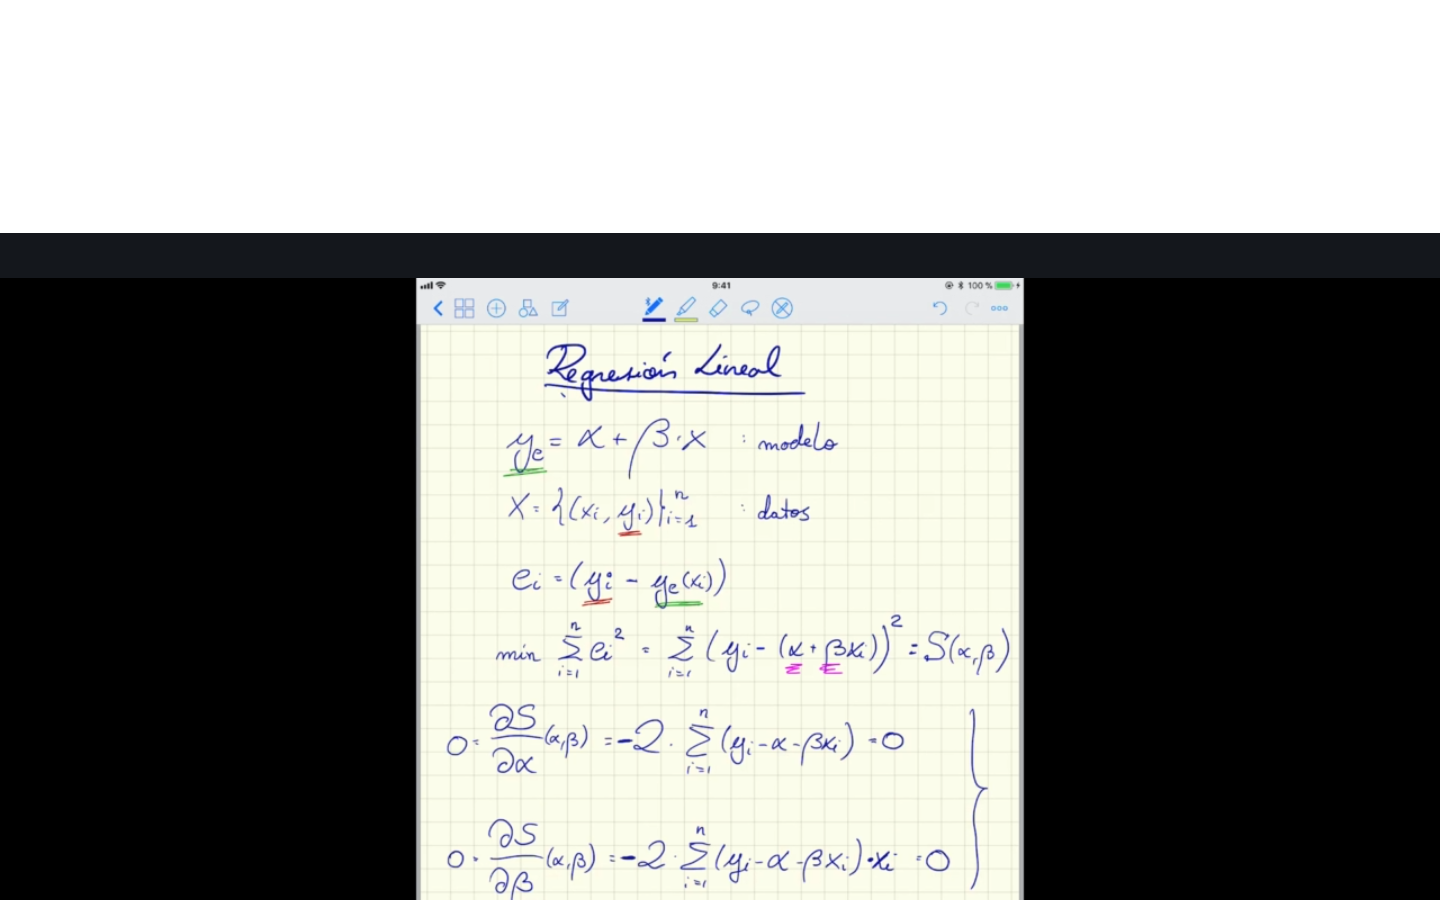 9:41
100 %
Regresión Lineal
yₑ = α + β·x : modelo
X = {(xᵢ, yᵢ)}ⁿᵢ₌₁ : datos
eᵢ = (yᵢ - yₑ(xᵢ))
min ∑ⁿᵢ₌₁ eᵢ² = ∑ⁿᵢ₌₁ (yᵢ - (α + βxᵢ))² = S(α,β)
0 = ∂S/∂α (α,β) = -2 · ∑ⁿᵢ₌₁ (yᵢ - α - βxᵢ) = 0
0 = ∂S/∂β (α,β) = -2 · ∑ⁿᵢ₌₁ (yᵢ - α - βxᵢ)·xᵢ = 0